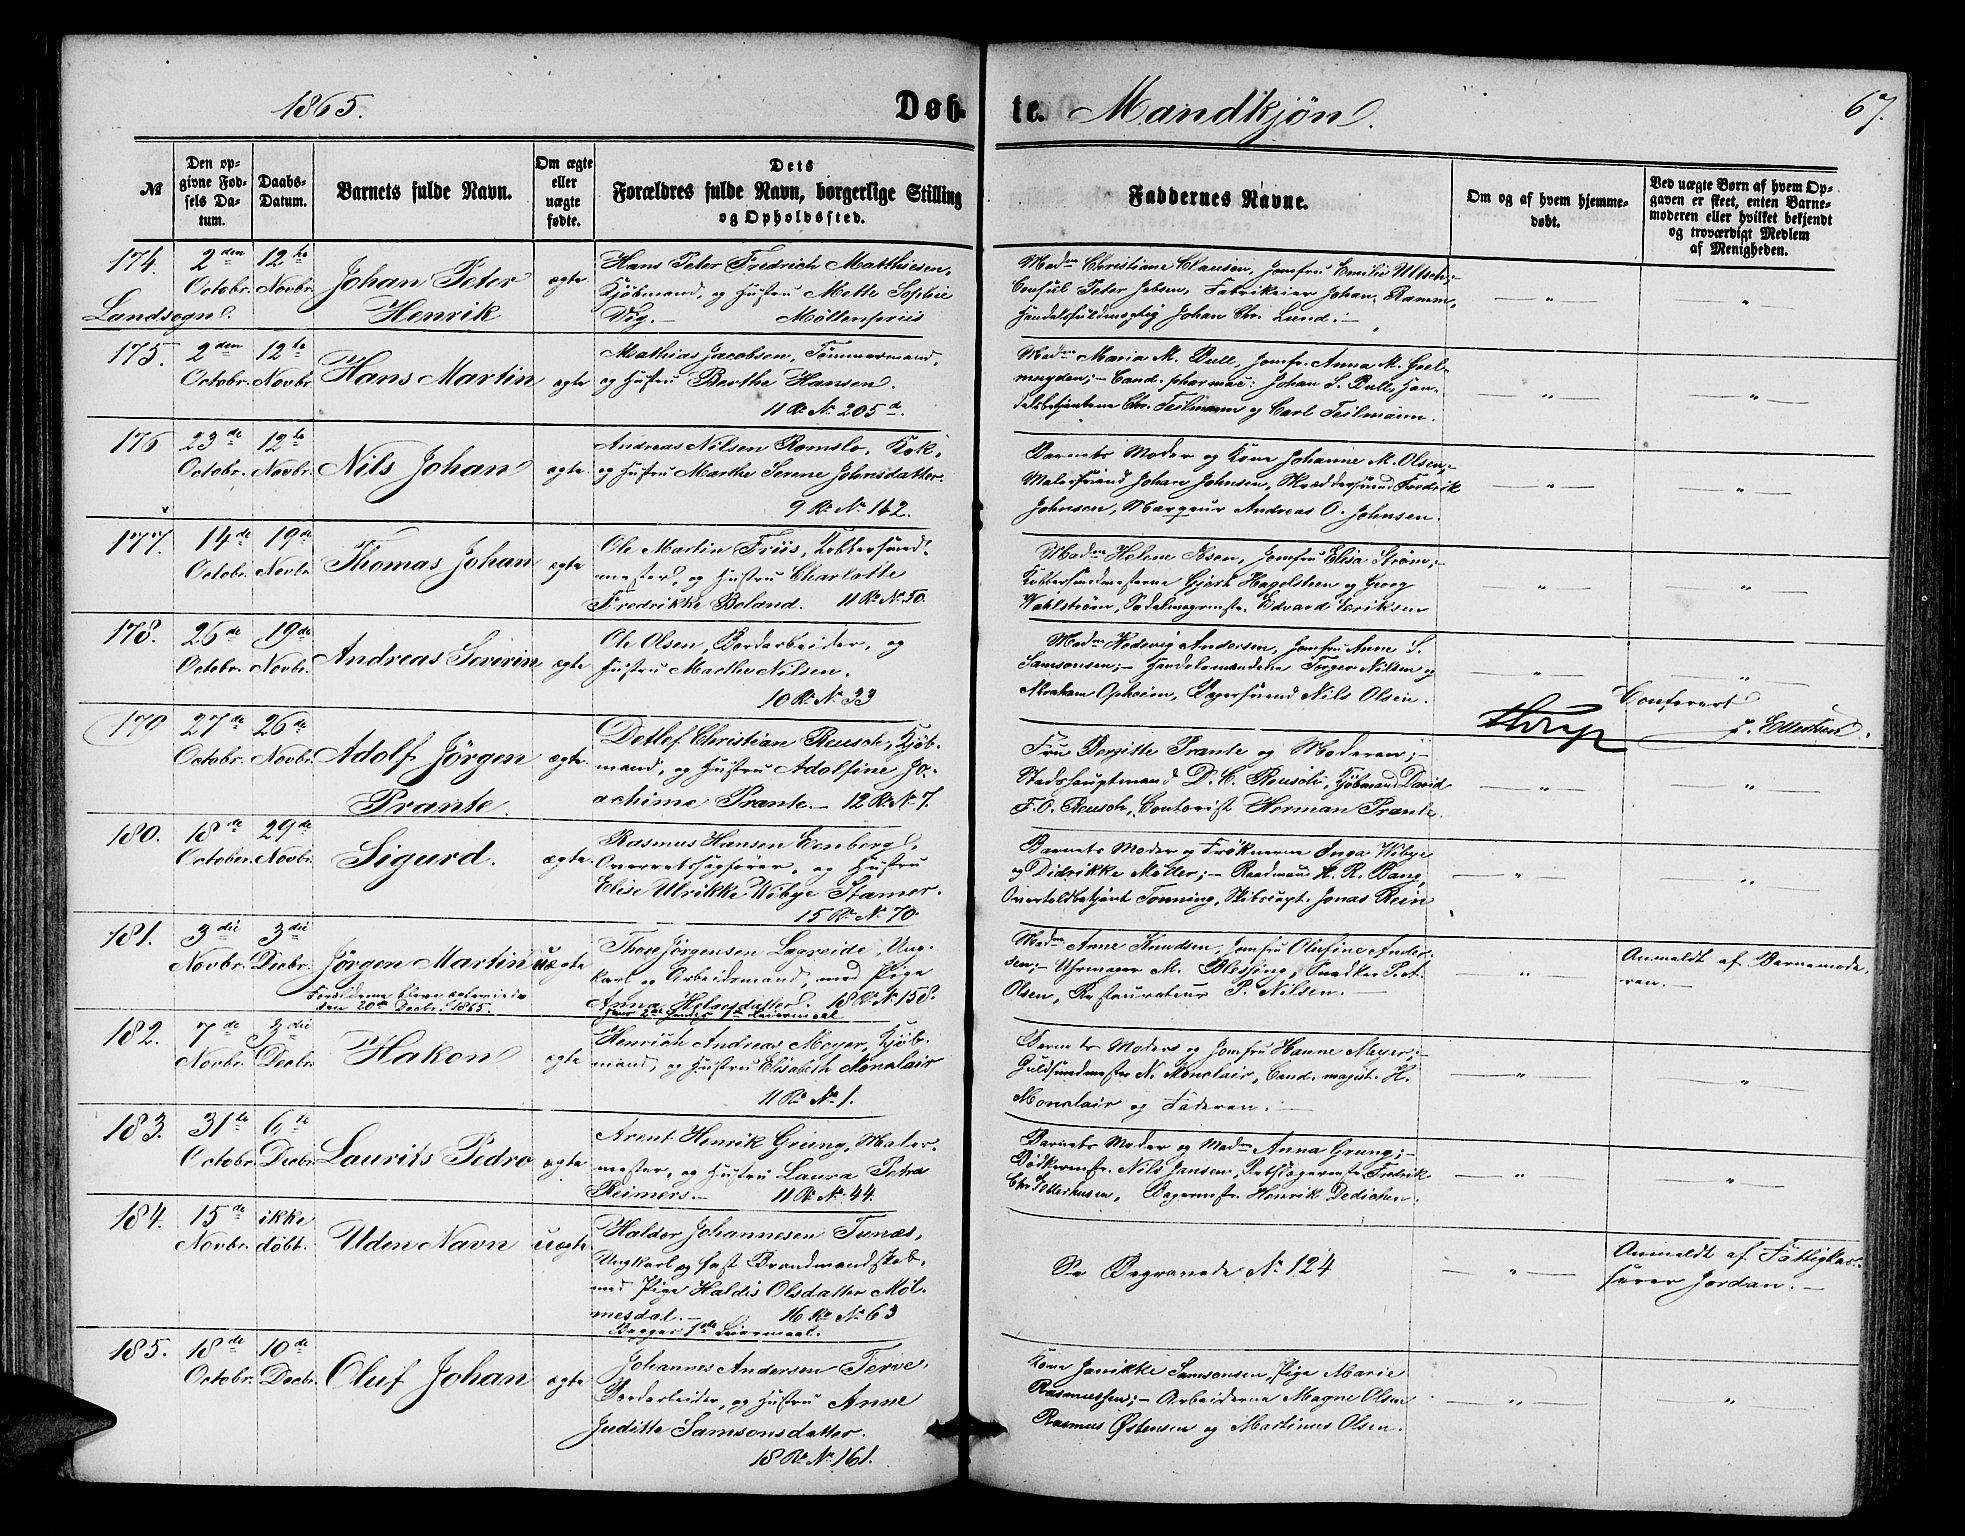 1865.
Døbte. Mandkjøn.
67.
№
Den opgivne Fødsels Datum.
Daabs-Datum.
Barnets fulde Navn.
Om ægte eller uægte fødte.
Dets Forældres fulde Navn, borgerlige Stilling og Opholdssted.
Faddernes Navne.
Om og af hvem hjemmedøbt.
Ved uægte Børn af hvem Opgaven er skeet, enten Barnemoderen eller hvilket bekjendt og troværdigt Medlem af Menigheden.
174. Landsogn.
2den Octobr.
12te Novbr.
Johan Peter
Henrik
ægte
Hans Peter Fredrich Matthiesen,
Kjøbmand, og Hustru Mette Sophie
Vig. — Møllenpriis
Madm Christiane Clausen, Jomfru Emilie Ultsch;—
Consul Peter Jebsen, Fabrikeier Johan Ramm,
Handelsfuldmægtig Johan Chr. Lund. —
175.
2den Octobr.
12te Novbr.
Hans Martin
ægte
Mathias Jacobsen, Tømmermand,
og Hustru Berthe Hansen.
11 R. N. 205 d.
Madm Maria M. Bull, Jomfr. Anna M. Geel-
muyden; — Cand. pharmac: Johan S. Bull, Han-
delsbetjentene Chr. Teilmann og Carl Teilmann.
176
23de Octobr.
12te Novbr.
Nils Johan
ægte.
Andreas Nilsen Romslo, Kok,
og Hustru Marthe Serene Johnsdatter.
9 R. N. 162.
Barnets Moder og Kone Johanne M. Olsen;—
Malersvend Johan Johnsen, Skræddersvend Fredrik
Johnsen, Marqueur Andreas O. Johnsen.
177.
14de Octobr.
19de Novbr.
Thomas Johan
ægte
Ole Martin Friis, Kobbersmed-
mester, og Hustru Charlotte
Fredrikke Boland. 11 R. N. 50.
Madm Helene Ibsen, Jomfru Elisa Strøm;—
Kobbersmedmesterne Gjert Hagelsteen og Georg
Wahlstrøm, Sadelmagermstr. Edvard Eriksen
178.
26de Octobr.
19de Novbr.
Andreas Severin
ægte
Ole Olsen, Bordarbeider, og
Hustru Marthe Nilsen.
10 R. N. 33
Madm Hedevig Andersen, Jomfru Anne S.
Samsonsen; — Handelsmændene Torger Nilsen og
Abraham Opheim, Bagersvend Nils Olsen.
Confereret
179
27de Octobr.
26de Novbr.
Adolf Jörgen
Prante.
ægte.
Detlef Christian Reusch, Kjøb-
mand, og Hustru Adolfine Jo-
achime Prante. — 12 R. N. 7.
Fru Bergitte Prante og Moderen; —
Stadshauptmand D. C. Reusch, Kjøbmand David
F. O. Reusch, Contorist Herman Prante.
180.
18de October.
29de Novbr.
Sigurd.
ægte.
Rasmus Hansen Eenberg,
Overretssagfører, og Hustru
Elise Ulrikke Wibye Stamer.
15 R. N. 70.
Barnets Moder og Frøknerne Inga Wibye
og Didrikke Møller; — Raadmand H. R. Bang,
Overtoldbetjent Tønning, Skibscapt. Jonas Rein
181.
3die Novbr.
3die Decbr.
Jörgen Martin
Forældrene bleve copulerede
den 20de Decbr. 1865.
uægte
Thore Jørgensen Lagreide, Ung-
karl og Arbeidsmand, med Pige
Anna Helgesdatter. 18 R. N. 158.
Hans 2det hendes 1ste Leiermaal
Madm Anne Knudsen, Jomfru Olufine Ander-
sen; — Uhrmager M. Blessing, Snedker P. A.
Olsen, Restaurateur P. Nilsen. —
Anmeldt af Barnemode-
ren. —
182.
7de Novbr.
3die Decbr.
Hakon
ægte
Henrich Andreas Meyer, Kjøb-
mand, og Hustru Elisabeth Monclair
11 R. N. 1.
Barnets Moder og Jomfru Hanne Meyer; —
Guldsmedmester N. Monclair, Cand. magist. H.
Monclair og Faderen. —
183.
31te Octobr.
6te Decbr.
Laurits Pedro
ægte
Arent Henrik Grung, Maler-
mester, og Hustru Laura Petra
Reimers. — 11 R. N. 44.
Barnets Moder og Madm Anna Grung; —
Bødkermstr. Nils Jansen, Rebslagermstr Fredrik
Chr. Ellerhusen, Bagermstr. Henrik Dedichen.
184.
15de Novbr.
ikke døbt.
Uden Navn
uægte
Haldor Johannesen Tunæs,
Ungkarl og fast Brandmandskab,
med Pige Haldis Olsdatter Møl-
mesdal. — 16 R. N. 63
Begges 1ste Leiermaal.
Se Begravede N. 124
Anmeldt af Fattigkas-
serer Jordan. —
185.
18de Octobr.
10de Decbr.
Oluf Johan
ægte
Johannes Andersen Terve,
Bordarbeider, og Hustru Anne
Juditte Samsonsdatter.
18 R. N. 161.
Kone Janikke Samsonsen, Pige Marie
Rasmussen; — Arbeiderne Magne Olsen
Rasmus Østensen og Martinus Olsen.